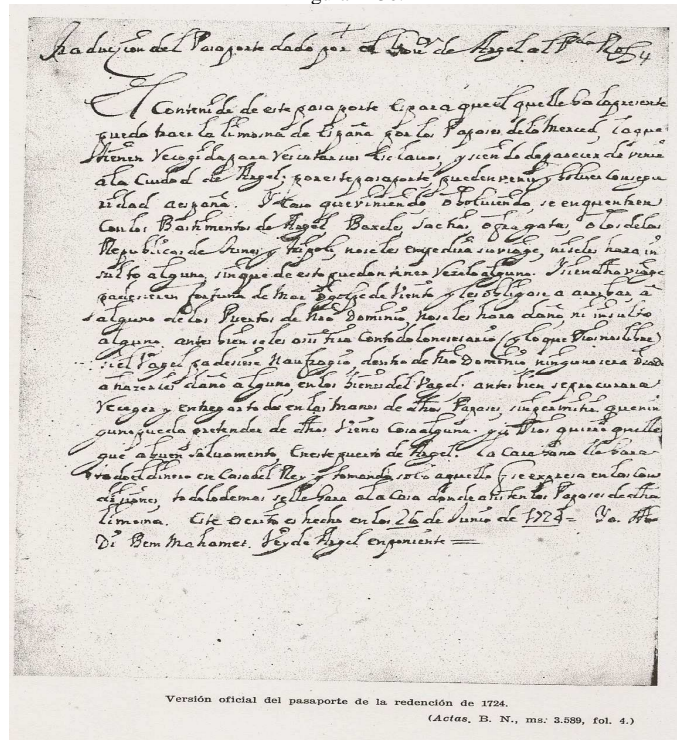 Traduczion del Pasaporte dado por el Gov.or de Argel al
4
El Contenido de este pasaporte Es para que el que lleba la presente
pueda traer la limosna de España por los Papases dela Merced, la que
tienen Recogida para Rescatar sus Esclavos, y siendo de parecer de venir
ala Ciudad de Argel; por este pasaporte, pueden venir y bolver con segu
ridad a españa. Y Caso que viniendo, o bolviendo, se enquentren
Con los Bastimentos de Argel, Baxeles, sachas, o fragatas, o los delas
Republicas de Tunes y Tripoli, no seles empedira su viage, ni seles hara in
sulto alguno, sin que de esto puedan tener Rezelo alguno. Y si en dho viage
padesieren fortuna de Mar o golpe de Viento, y les obligase a arribar à
alguno de los Puertos de nro Dominio no se les hara daño, ni insulto
alguno, antes bien se les asistira Con todo lo nesesario (y lo que Dios no libre)
si el Vagel padesiese Naufragio dentro de nro Dominio ninguno sera
a hazerles daño alguno, en los bienes del Vagel. antes bien se procurara
Recoger y entregar todo en las manos de dhos Papases, sin permitir que nin
guno pueda pretender de dhos bienes Cosa alguna. y si Dios quiere que lle
gue a buen salvamento, En este puerto de Argel. La Cara
todo el dinero en Casa del Rey; y tomando solo aquello q se expresa en las Con
disiones, todo lo demas se llebara a la Casa donde asisten los Papases de dha
limosna. Este Escrito es hecho en los 26 de Junio de 1724 = Yo
Di Bem Mahamet. Rey de Argel en poniente =
Versión oficial del pasaporte de la redención de 1724.
(Actas. B. N., ms. 3.589, fol. 4.)